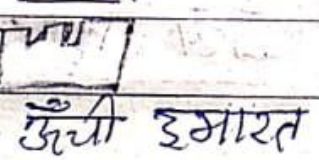 ऊँची इमारत